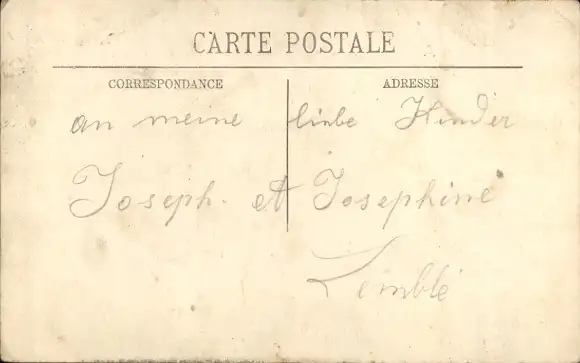 CARTE POSTALE
CORRESPONDANCE ADRESSE
an meine liebe Kinder
Joseph. et Josephine
Lemblé